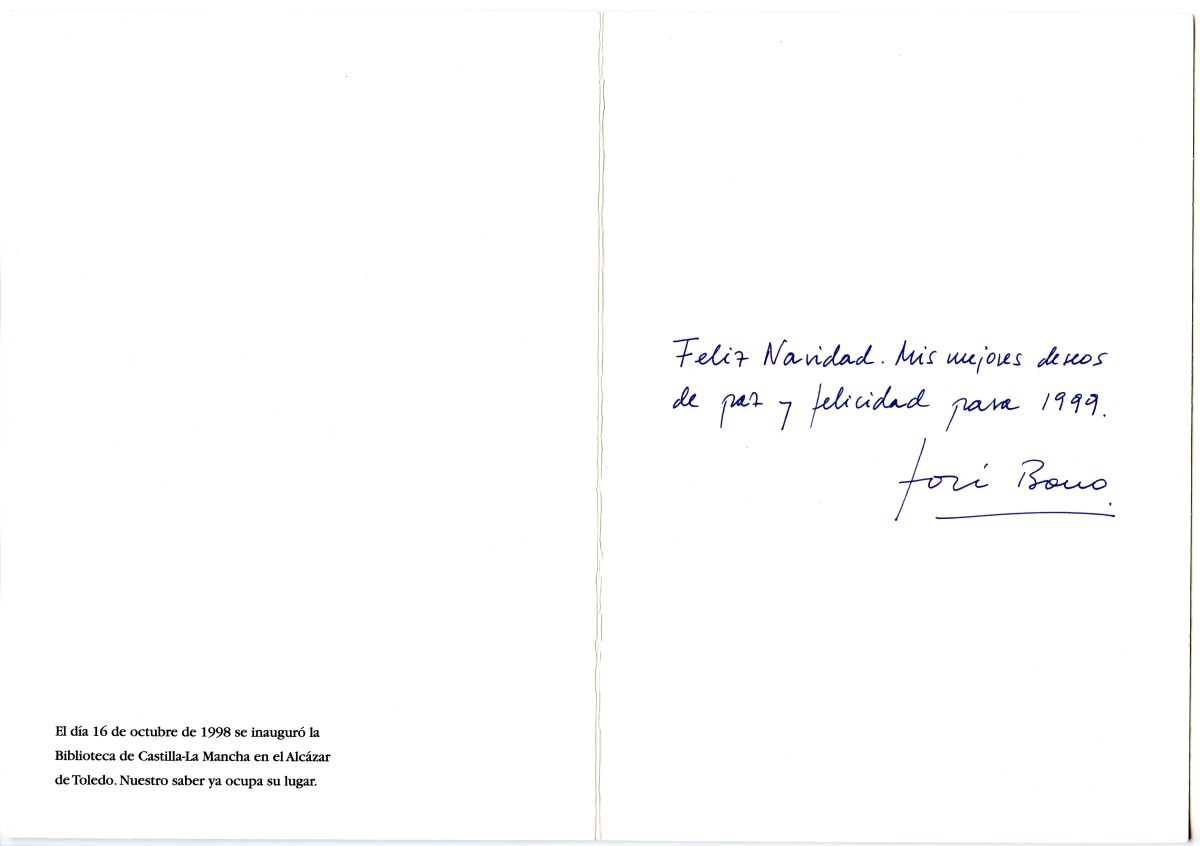 El día 16 de octubre de 1998 se inauguró la
Biblioteca de Castilla-La Mancha en el Alcázar
de Toledo. Nuestro saber ya ocupa su lugar.
Feliz Navidad. Mis mejores deseos
de paz y felicidad para 1999.
José Bono.